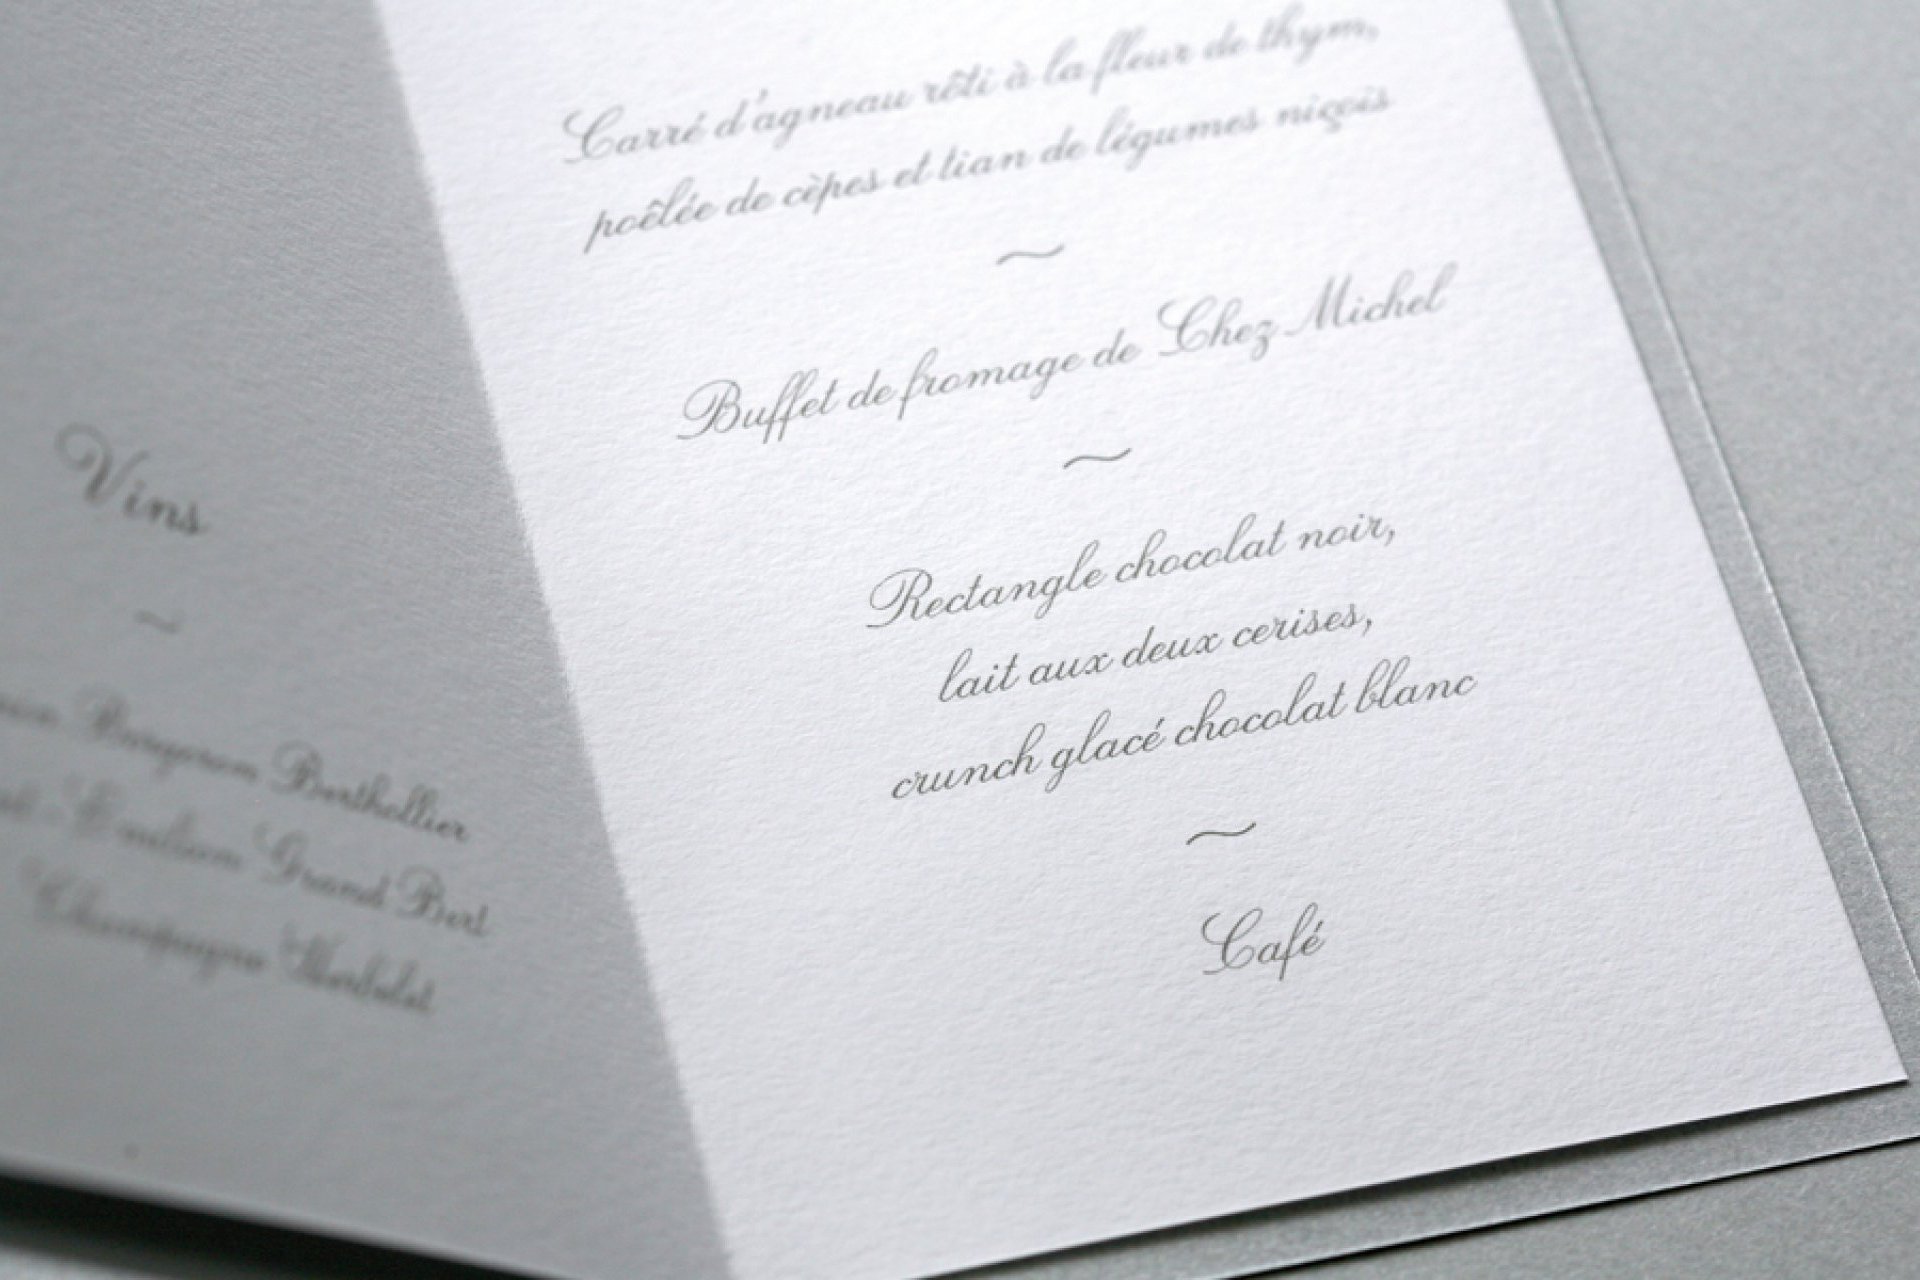 Vins
~
Bergeron Berthollier
Emilion Grand Bert
Champagne
Carré d'agneau rôti à la fleur de thym,
poêlée de cèpes et tian de légumes niçois
~
Buffet de fromage de Chez Michel
~
Rectangle chocolat noir,
lait aux deux cerises,
crunch glacé chocolat blanc
~
Café